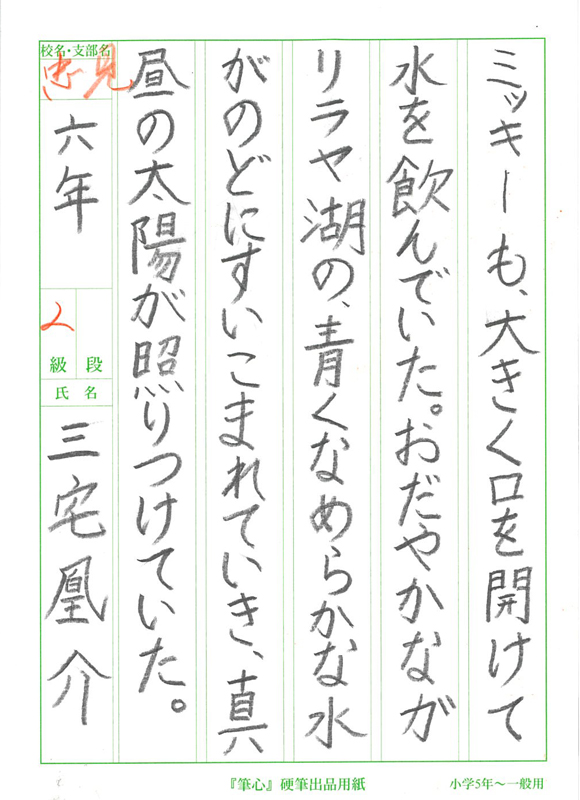 ミッキーも、大きく口を開けて
水を飲んでいた。おだやかなが
リラヤ湖の、青くなめらかな水
がのどにすいこまれていき、真
昼の太陽が照りつけていた。
校名・支部名
忠見
六年
級 段
氏 名
三宅凰介
『筆心』硬筆出品用紙
小学5年～一般用